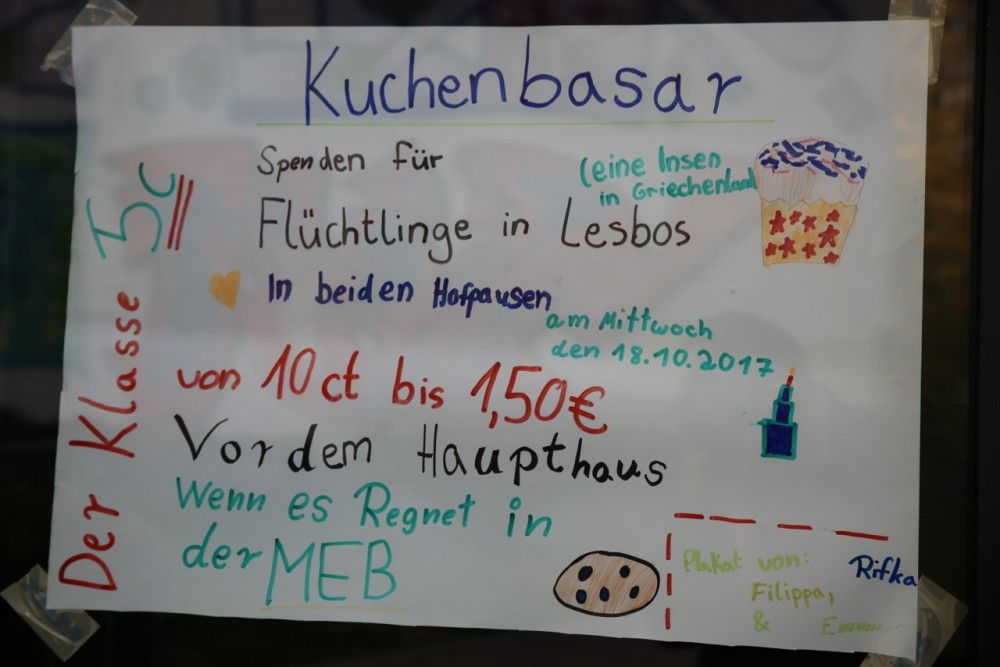 Kuchenbasar
Der Klasse 5c
Spenden für
(eine Insen
in Griechenland
Flüchtlinge in Lesbos
In beiden Hofpausen
am Mittwoch
den 18.10.2017
von 10ct bis 1,50€
Vor dem Haupthaus
Wenn es Regnet in
der MEB
Plakat von: Rifka
Filippa,
&